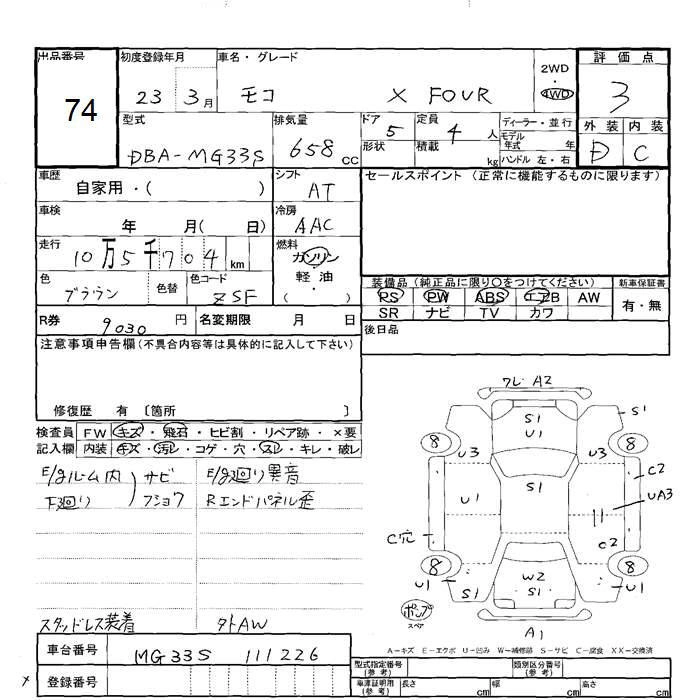 出品番号 初度登録年月 車名・グレード 2WD 評価点
74 23 3月 モコ X FOUR ・ 4WD 3
型式 排気量 ドア 5 定員 4 人 ディーラー・並行 外装 内装
DBA-MG33S 658 CC 形状 積載 kg モデル年式 年 D C
ハンドル 左・右
車歴 自家用・( ) シフト AT セールスポイント(正常に機能するものに限ります)
車検 年 月( 日) 冷房 AAC
走行 10万5千704 km 燃料 ガソリン・軽油・( )
色 ブラウン 色替 色コード ZSF
装備品(純正品に限り○をつけてください) 新車保証書
PS PW ABS エアB AW 有・無
SR ナビ TV カワ
R券 9030 円 名変期限 月 日 後日品
注意事項申告欄(不具合内容等は具体的に記入して下さい)
修復歴 有 〔箇所 〕
検査員 FW キズ・飛石・ヒビ割・リペア跡・×要
記入欄 内装 キズ・汚レ・コゲ・穴・スレ・キレ・破レ
E/gルーム内 サビ E/g廻り異音
下廻り フショク Rエンドパネル歪
スタッドレス装着 タトAW
ワレ A2
S1 U1 S1
8 U3 U3 8
S1 C2
U1 UA3
C穴 C2
8 W2 8
U1 S1 S1 U1
ポンプ
スペア
A1
A-キズ E-エクボ U-凹み W-補修跡 S-サビ C-腐食 XX-交換済
車台番号 MG33S 111226
登録番号
型式指定番号(参考) 類別区分番号(参考)
車庫証明用(参考) 長さ cm 幅 cm 高さ cm